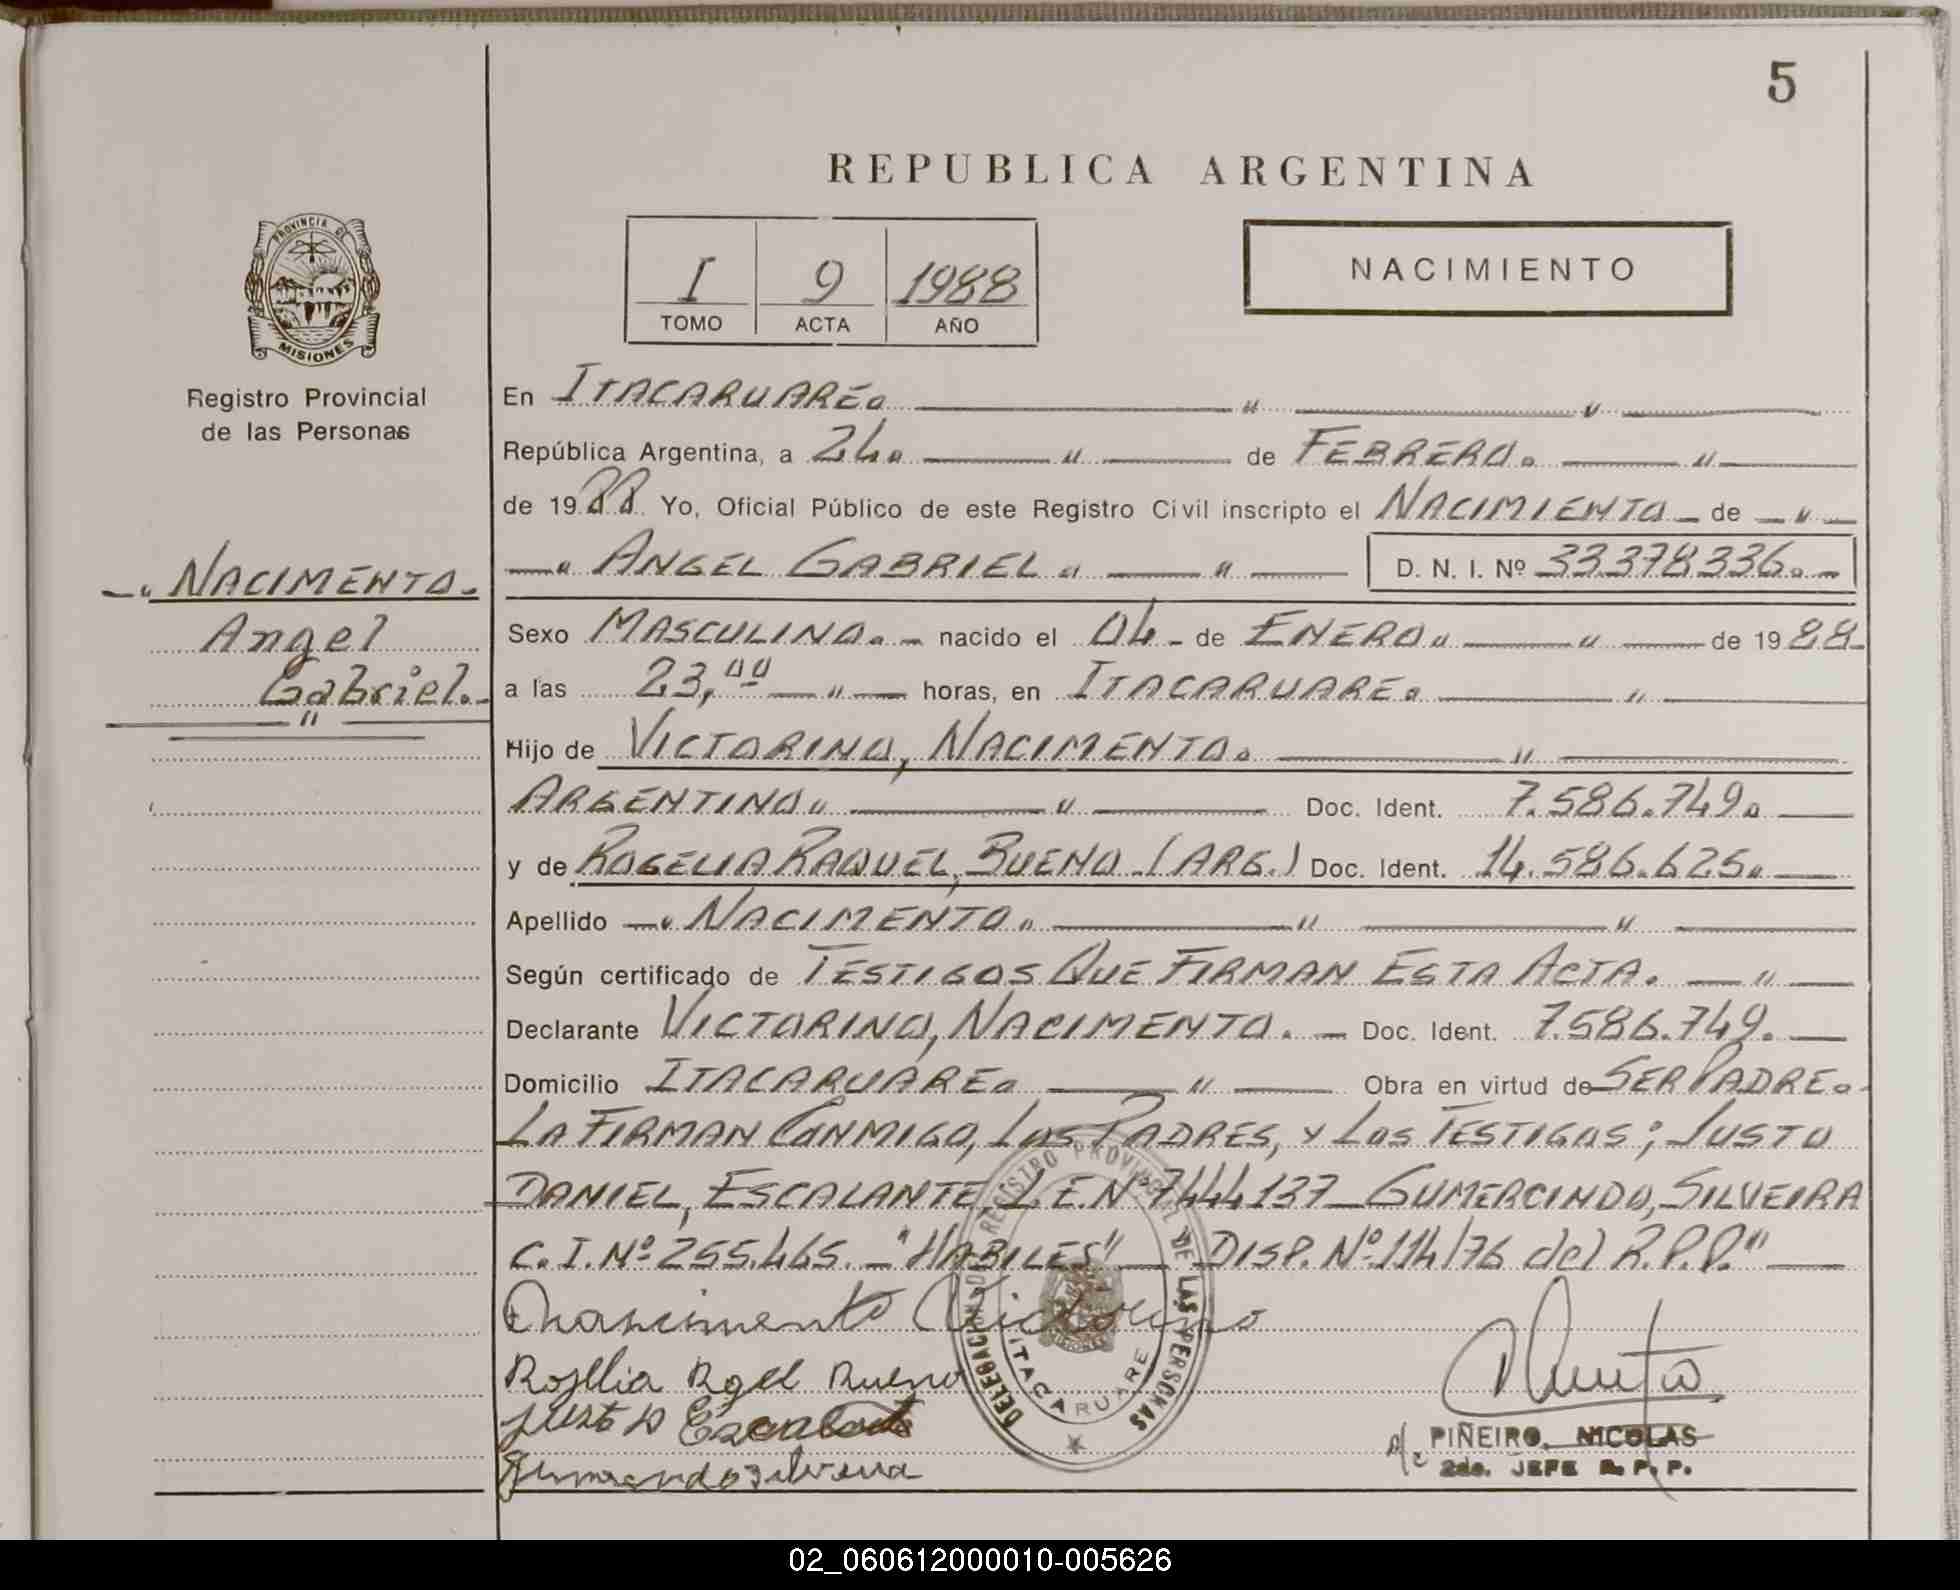 5
REPUBLICA ARGENTINA
PROVINCIA DE
MISIONES
I 9 1988
TOMO ACTA AÑO
NACIMIENTO
Registro Provincial
de las Personas
En ITACARUARÉ. " "
República Argentina, a 24. " de FEBRERO. "
de 1988 Yo, Oficial Público de este Registro Civil inscripto el NACIMIENTO de "
" ANGEL GABRIEL " " D. N. I. Nº 33378336.
" NACIMENTO.
Angel
Gabriel.
"
Sexo MASCULINO. nacido el 04 de ENERO " " de 1988
a las 23,00 " horas, en ITACARUARE. "
Hijo de VICTORINO, NACIMENTO. "
ARGENTINO " " Doc. Ident. 7.586.749.
y de ROGELIA RAQUEL, BUENO (ARG.) Doc. Ident. 14.586.625.
Apellido " NACIMENTO " " "
Según certificado de TESTIGOS QUE FIRMAN ESTA ACTA. "
Declarante VICTORINO, NACIMENTO. Doc. Ident. 7.586.749.
Domicilio ITACARUARE. " Obra en virtud de SER PADRE.
LA FIRMAN CONMIGO, LOS PADRES, Y LOS TESTIGOS; JUSTO
DANIEL, ESCALANTE L.E.Nº 7444137 GUMERCINDO, SILVEIRA
C.I.Nº 255.465. "HABILES" DISP. Nº 114/76 del R.P.P."
Victorino
Bueno
Justo D
DELEGACION DEL REGISTRO PROVINCIAL DE LAS PERSONAS
ITACARUARE
PIÑEIRO, NICOLAS
2do. JEFE R. P. P.
02_060612000010-005626